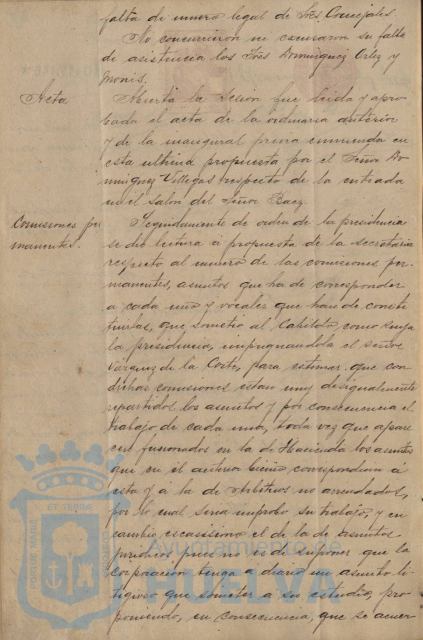 falta de numero legal de Sres. Concejales.
No concurrieron ni excusaron su falta
de asistencia los Sres Dominguez Ortiz y
Monis.
Acta
Abierta la sesión fue leida y apro-
bada el acta de la ordinaria anterior
y de la inaugural previa enmienda en
esta ultima propuesta por el Señor Do-
minguez Villegas respecto de la entrada
en el salon del Señor Baez.
Comisiones per-
manentes.
Seguidamente de orden de la presidencia
se dio lectura á propuesta de la secretaria
respecto al numero de las comisiones per-
manentes, asuntos que ha de corresponder
a cada una y vocales que han de consti-
tuirlas, que sometio al Cabildo, como suya
la presidencia, impugnandola el señor
Vazquez de la Corte, para estimar que con
dichas comisiones estan muy desigualmente
repartidos los asuntos y por consecuencia el
trabajo de cada una, toda vez que apare-
cen fusionados en la de Hacienda los asuntos
que en el anterior bienio correspondian á
esta y á la de Arbitrios no arrendados,
por lo cual seria improbo su trabajo, y en
cambio escasisimo el de la de asuntos
juridicos pues no es de suponer que la
corporacion tenga a diario un asunto li-
tigioso que someter a su estudio, pro-
poniendo, en consecuencia, que se acuer-
Ayuntamiento de
HUELVA
PORTUS MARIS
ET TERRAE
CUSTODIA